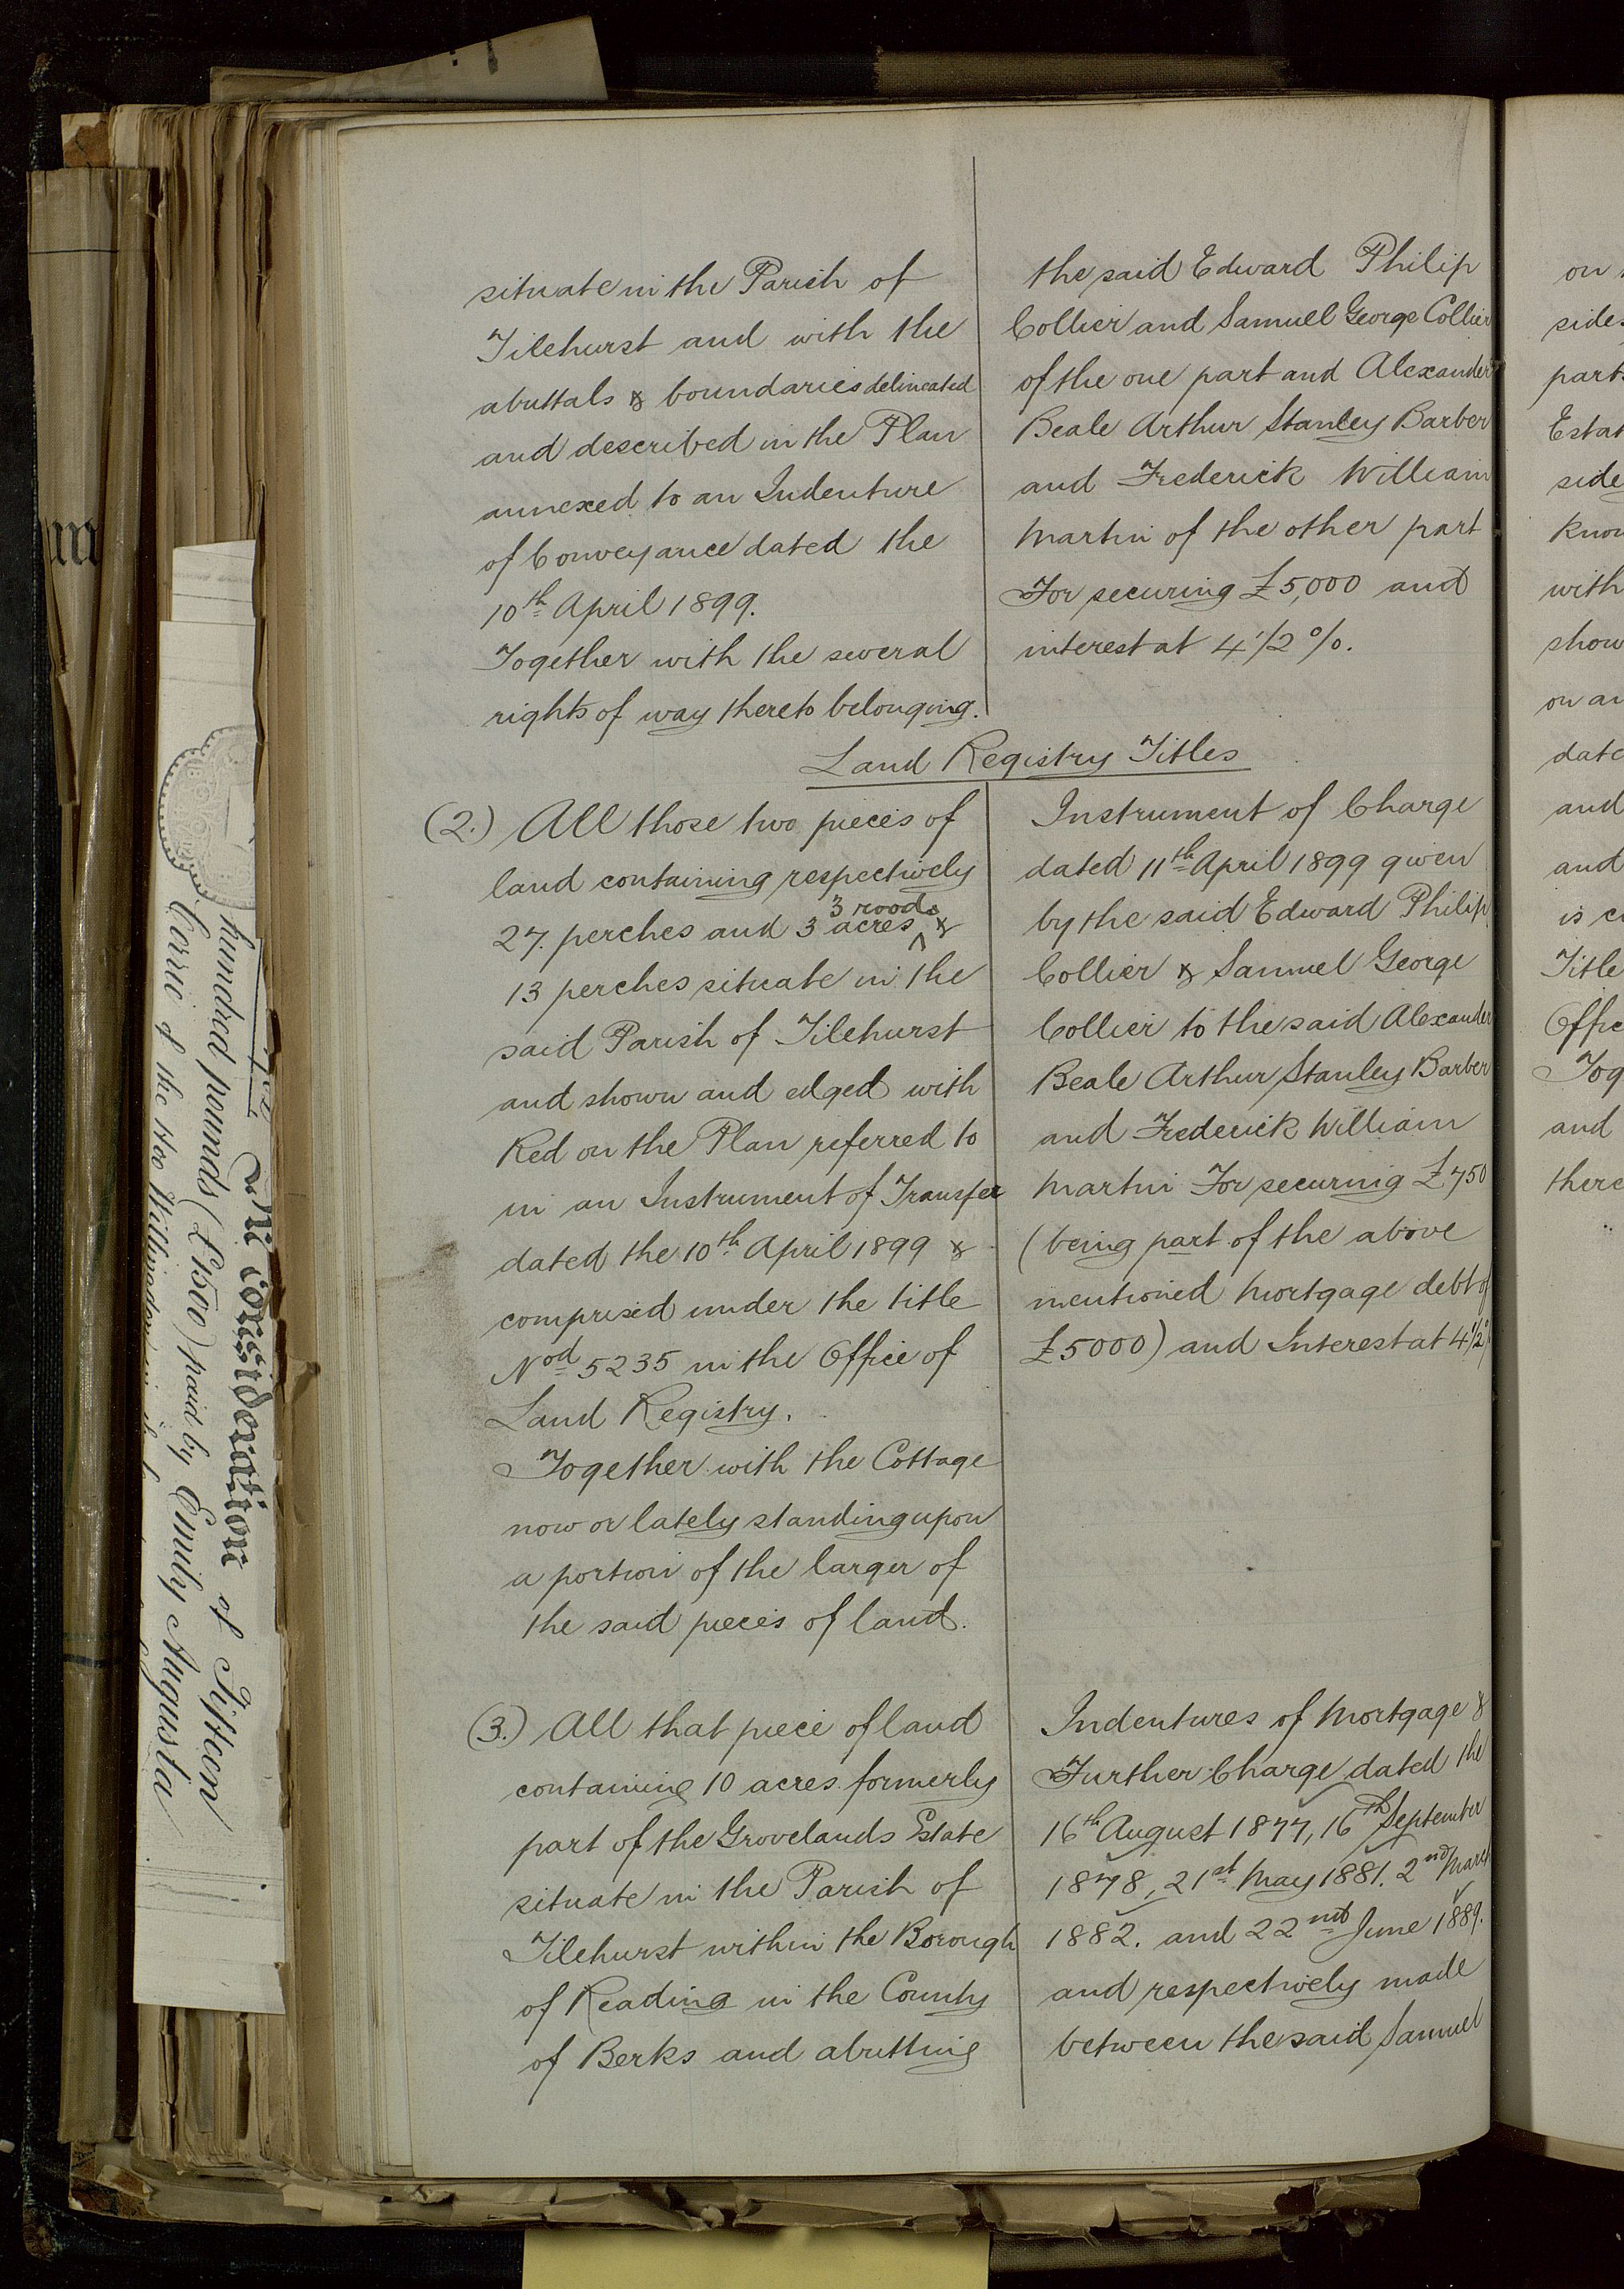 situate in the Parish of
Tilehurst and with the
abuttals & boundaries delineated
and described in the Plan
annexed to an Indenture
of Conveyance dated the
10th April 1899.
Together with the several
rights of way thereto belonging.
the said Edward Philip
Collier and Samuel George Collier
of the one part and Alexander
Beale Arthur Stanley Barber
and Frederick William
Martin of the other part
For securing £5,000 and
interest at 4 1/2 %.
Land Registry Titles
(2.) All those two pieces of
land containing respectively
3 roods
27 perches and 3 acres ^ &
13 perches situate in the
said Parish of Tilehurst
and shown and edged with
Red on the Plan referred to
in an Instrument of Transfer
dated the 10th April 1899 &
comprised under the title
Nod 5235 in the Office of
Land Registry.
Together with the Cottage
now or lately standing upon
a portion of the larger of
the said pieces of land.
Instrument of Charge
dated 11th April 1899 given
by the said Edward Philip
Collier & Samuel George
Collier to the said Alexander
Beale Arthur Stanley Barber
and Frederick William
Martin For securing £750
(being part of the above
mentioned Mortgage debt of
£5000) and Interest at 4 1/2 %
(3.) All that piece of land
containing 10 acres formerly
part of the Grovelands Estate
situate in the Parish of
Tilehurst within the Borough
of Reading in the County
of Berks and abutting
Indentures of Mortgage &
Further Charge dated the
16th August 1877, 16th September
1878, 21st May 1881. 2nd March
1882. and 22nd June 1889.
and respectively made
between the said Samuel
on
side
part
Estat
side
know
with
show
on an
date
and
and
is c
Title
Offic
Tog
and
there
consideration of Fifteen
hundred pounds (£1500) paid by Emily Augusta
of the